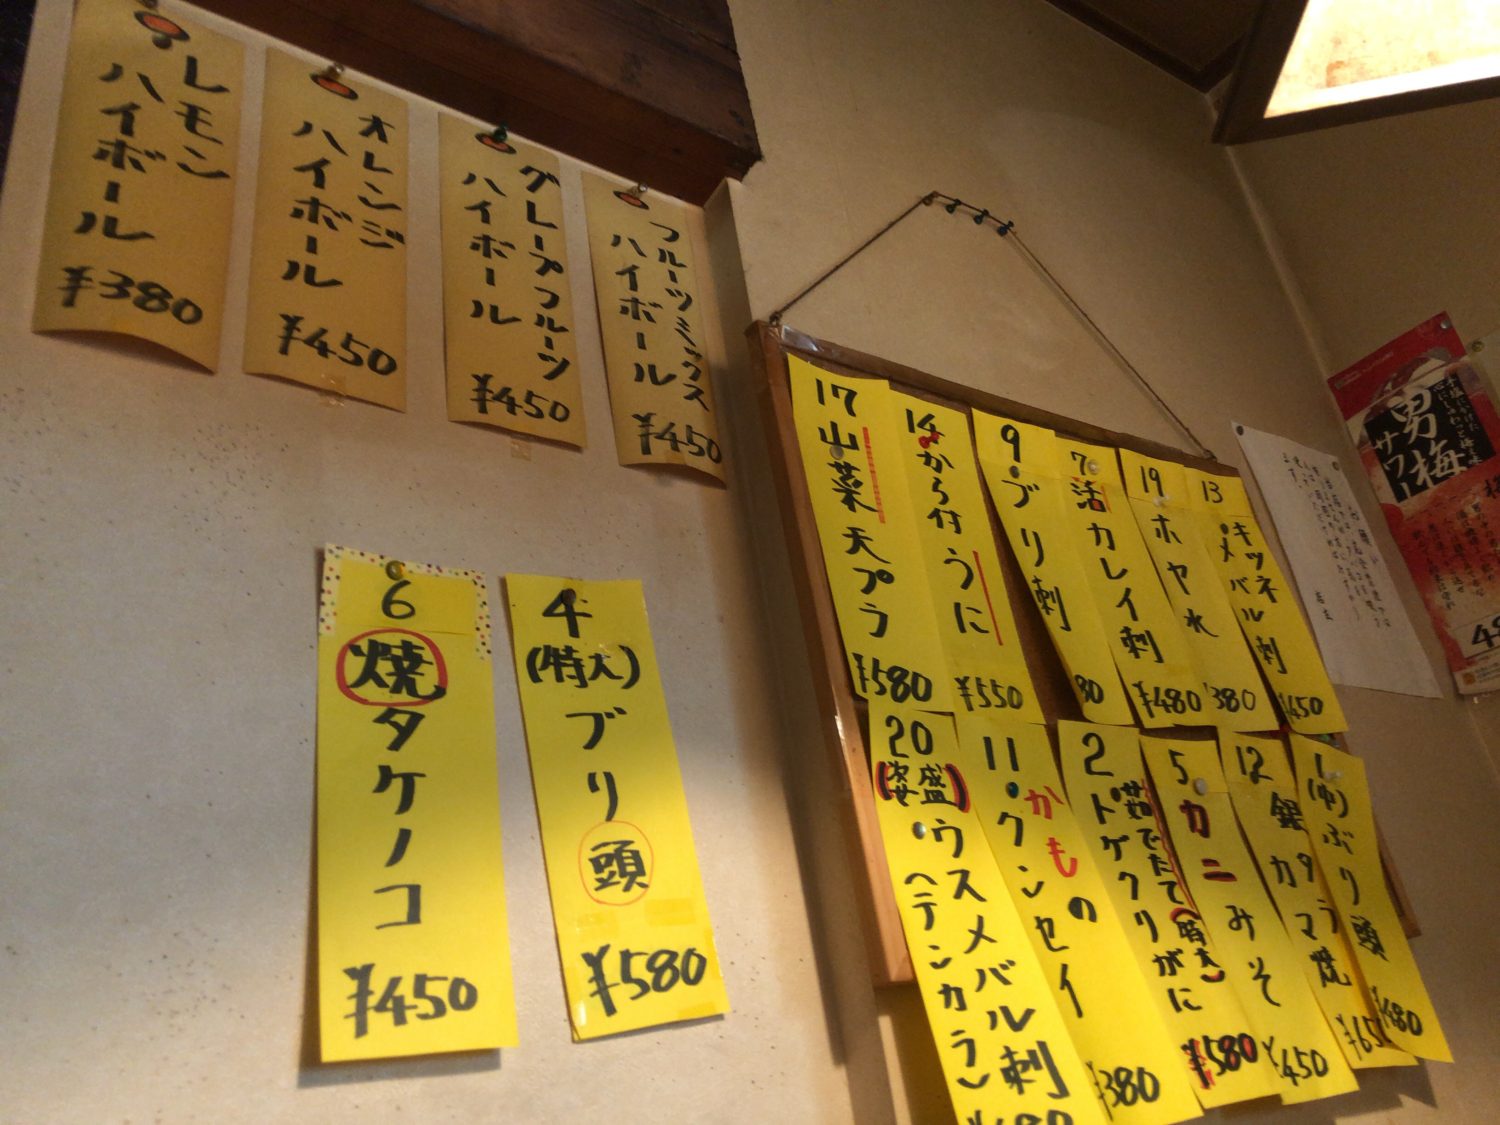 レモン
ハイボール
¥380
オレンジ
ハイボール
¥450
グレープフルーツ
ハイボール
¥450
フルーツミックス
ハイボール
¥450
6
焼タケノコ
¥450
4
(特大)
ブリ頭
¥580
17
山菜天プラ
¥580
14
から付うに
¥550
9
ブリ刺
7
活カレイ刺
80
19
ホヤ水
¥480
13
キツネ
メバル刺
380
¥450
20
(姿盛)
ウスメバル刺
(テンカラ)
11
かもの
クンセイ
¥380
2
茹でたて(特大)
トゲクリがに
¥580
5
カニみそ
¥450
12
銀タラ
カマ焼
¥65
1
(中)
ぶり頭
¥480
男梅
サワー
店主